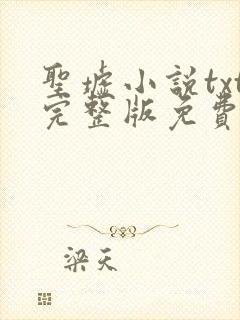 聖墟小説txt
完整版免費
梁天